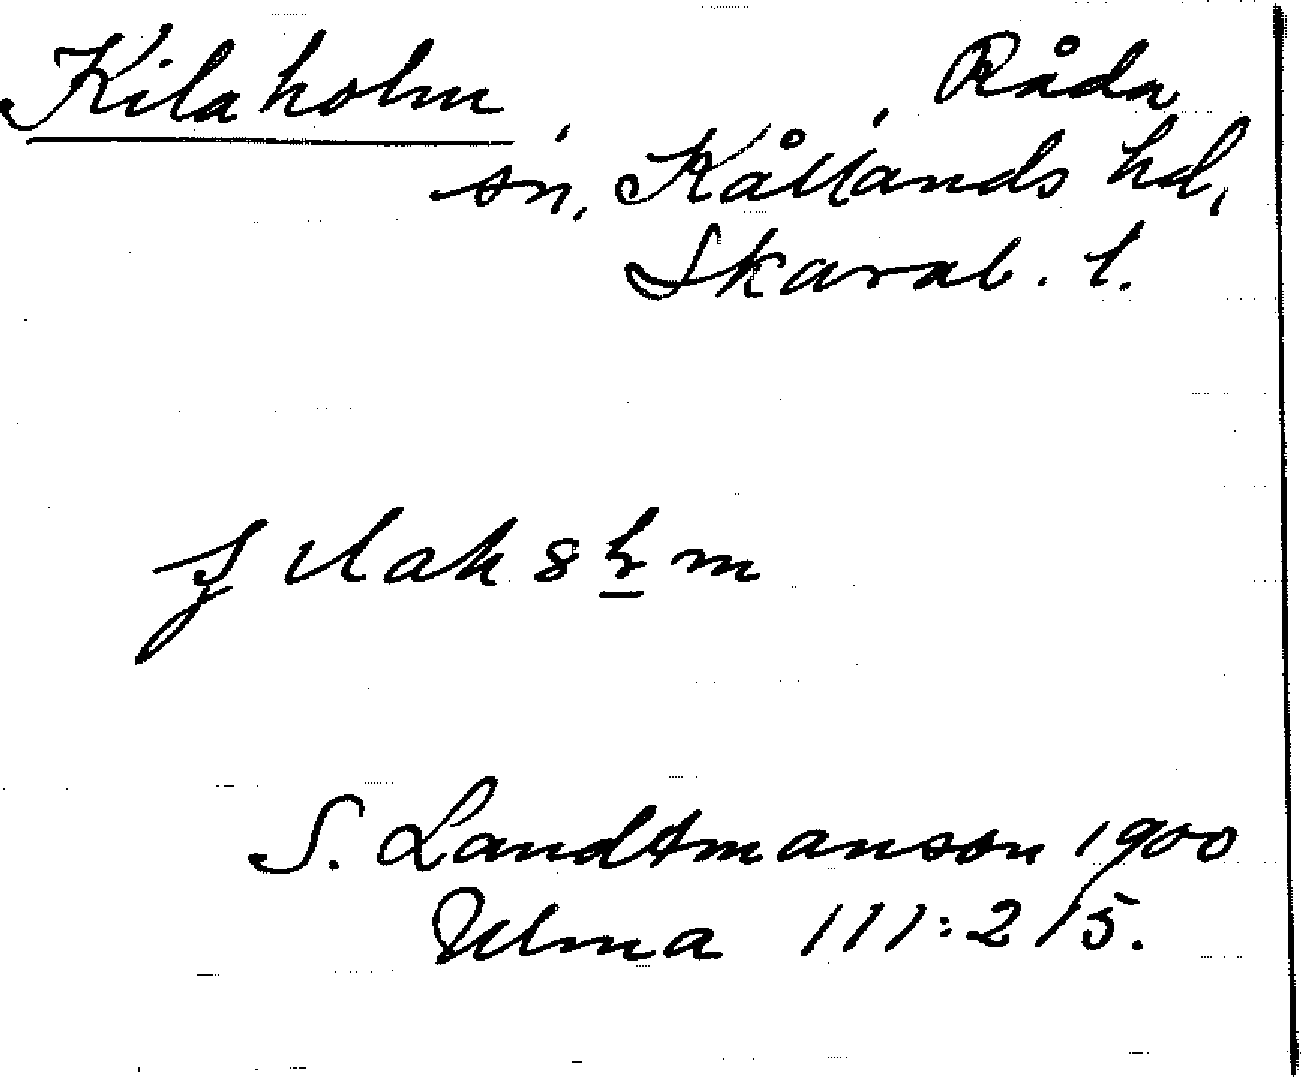 Kilaholm, Råda
sn, Kållands hd,
Skarab. l.
S. Landtmanson 1900
Ulma 111:215.